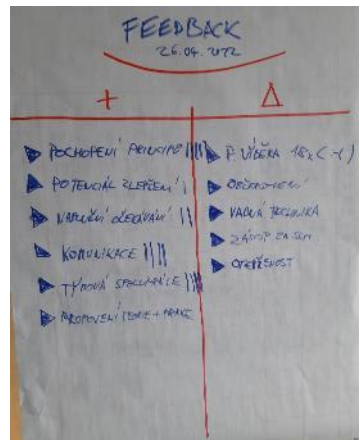 FEEDBACK
26.04.2022
+
Δ
POCHOPENÍ PRINCIPŮ
POTENCIÁL ZLEPŠENÍ
NAPLNĚNÍ OČEKÁVÁNÍ
KOMUNIKACE
TÝMOVÁ SPOLUPRÁCE
PROPOJENÍ TEORIE + PRAXE
P. VÝBĚRA 18x (-1)
OBČERSTVENÍ
VADNÁ TECHNIKA
OTEVŘENOST